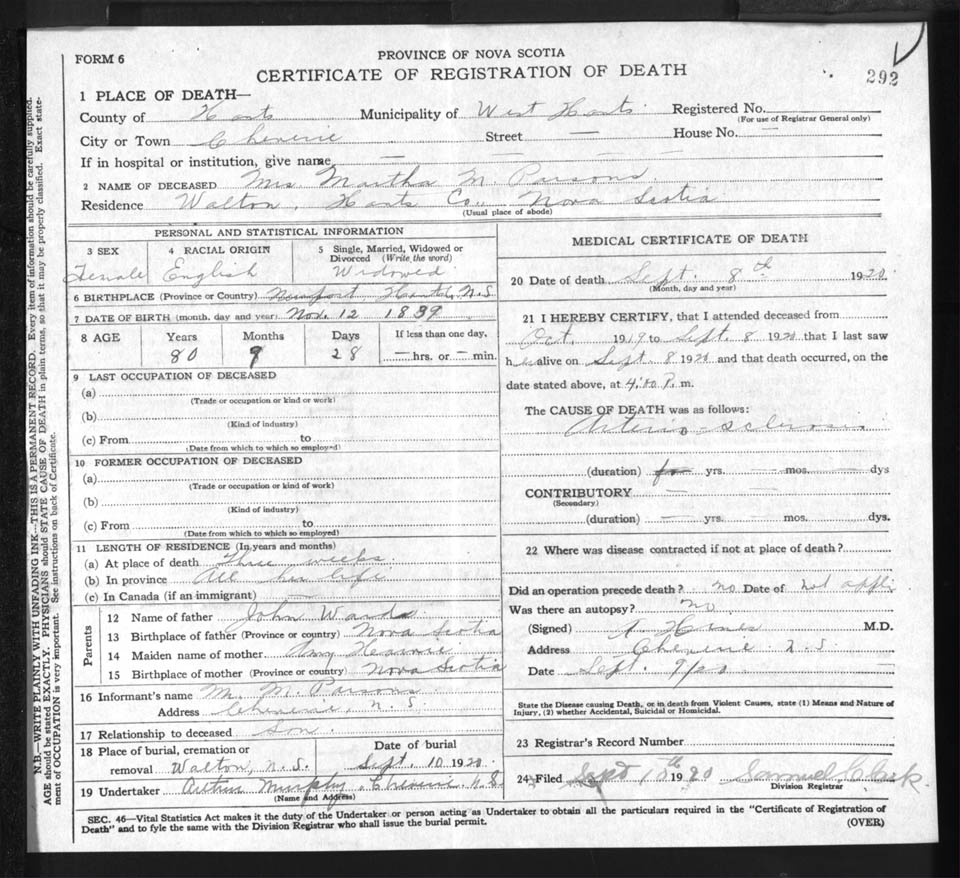 FORM 6
PROVINCE OF NOVA SCOTIA
CERTIFICATE OF REGISTRATION OF DEATH
292
1 PLACE OF DEATH—
County of Hants Municipality of West Hants Registered No.
(For use of Registrar General only)
City or Town Cheverie Street — House No. —
If in hospital or institution, give name — — — —
2 NAME OF DECEASED Mrs. Martha M. Parsons
Residence Walton, Hants Co., Nova Scotia
(Usual place of abode)
PERSONAL AND STATISTICAL INFORMATION
3 SEX 4 RACIAL ORIGIN 5 Single, Married, Widowed or Divorced (Write the word)
Female English Widowed
6 BIRTHPLACE (Province or Country) Newport Hants, N.S
7 DATE OF BIRTH (month, day and year) Nov. 12 1839
8 AGE Years Months Days If less than one day,
80 9 28 — hrs. or — min.
9 LAST OCCUPATION OF DECEASED
(a)
(Trade or occupation or kind or work)
(b)
(Kind of industry)
(c) From to
(Date from which to which so employed)
10 FORMER OCCUPATION OF DECEASED
(a)
(Trade or occupation or kind of work)
(b)
(Kind of industry)
(c) From to
(Date from which to which so employed)
11 LENGTH OF RESIDENCE (In years and months)
(a) At place of death Three weeks
(b) In province All her life
(c) In Canada (if an immigrant) —
Parents
12 Name of father John Wards
13 Birthplace of father (Province or country) Nova Scotia
14 Maiden name of mother Amy
15 Birthplace of mother (Province or country) Nova Scotia
16 Informant's name M. M. Parsons
Address Cheverie, N.S.
17 Relationship to deceased Son
18 Place of burial, cremation or removal Walton, N.S. Date of burial Sept. 10 1920
19 Undertaker Arthur Murphy, Cheverie N.S
(Name and Address)
MEDICAL CERTIFICATE OF DEATH
20 Date of death Sept. 8th 1920
(Month, day and year)
21 I HEREBY CERTIFY, that I attended deceased from
Oct. 1919 to Sept. 8 1920 that I last saw
her alive on Sept. 8 1920 and that death occurred, on the
date stated above, at P. m.
The CAUSE OF DEATH was as follows:
Arterio sclerosis
(duration) yrs. — mos. — dys
CONTRIBUTORY — —
(Secondary)
(duration) — yrs. — mos. — dys.
22 Where was disease contracted if not at place of death?
Did an operation precede death? no Date of not appli
Was there an autopsy? no.
(Signed) M.D.
Address Cheverie N.S
Date Sept. 9/20
State the Disease causing Death, or in death from Violent Causes, state (1) Means and Nature of
Injury, (2) whether Accidental, Suicidal or Homicidal.
23 Registrar's Record Number
24 Filed Sept 1920 Samuel Clark.
Division Registrar
SEC. 46—Vital Statistics Act makes it the duty of the Undertaker or person acting as Undertaker to obtain all the particulars required in the "Certificate of Registration of
Death" and to fyle the same with the Division Registrar who shall issue the burial permit.
(OVER)
N.B.—WRITE PLAINLY WITH UNFADING INK—THIS IS A PERMANENT RECORD. Every item of information should be carefully supplied.
AGE should be stated EXACTLY. PHYSICIANS should STATE CAUSE OF DEATH in plain terms, so that it may be properly classified. Exact state-
ment of OCCUPATION is very important. See instructions on back of Certificate.